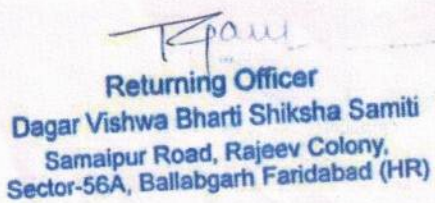 Returning Officer
Dagar Vishwa Bharti Shiksha Samiti
Samaipur Road, Rajeev Colony,
Sector-56A, Ballabgarh Faridabad (HR)